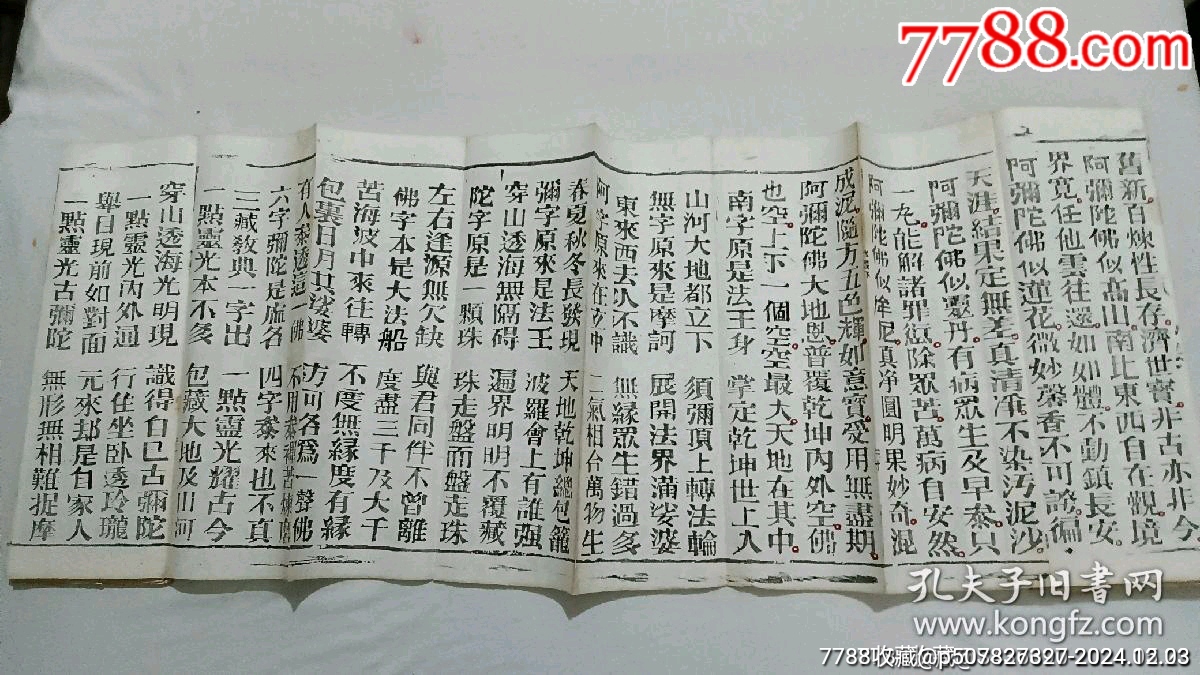 7788.com
舊新百煉性長存濟世寶非古亦非今
阿彌陀佛似高山南北東西自在觀境
界寬任他雲往還如如體不動鎮長安
阿彌陀佛似蓮花微妙馨香不可誇徧
天涯結果定無差真清淨不染汚泥沙
阿彌陀佛似靈丹有病眾生及早叅只
一丸能解諸罪愆除眾苦萬病自安然
阿彌陀佛似牟尼真淨圓明果妙奇混
成泥隨方五色輝如意寶受用無盡期
阿彌陀佛大地恩普覆乾坤內外空佛
也空上下一個空空最大天地在其中
南字原是法王身 掌定乾坤世上人
山河大地都立下 須彌頂上轉法輪
無字原來是摩訶 展開法界滿娑婆
東來西去人不識 無緣眾生錯過多
阿字原來在立中 二氣相台萬物生
春夏秋冬長發現 天地乾坤總包籠
彌字原來是法王 波羅會上有誰强
穿山透海無隔碍 遍界明明不覆藏
陀字原是一顆珠 珠走盤而盤走珠
左右逢源無欠缺 與君同伴不曾離
佛字本是大法船 度盡三千及大千
苦海波中來往轉 不度無緣度有緣
包裹日月共娑婆 方可名爲一聲佛
有人叅透這一佛 不用叅禪苦煉磨
六字彌陀是虛名 四字叅來也不真
三藏敎典一字出 一點靈光耀古今
一點靈光本不多 包藏大地及山河
穿山透海光明現 識得自己古彌陀
一點靈光內外通 行住坐臥透玲瓏
舉目現前如對面 元來却是自家人
一點靈光古彌陀 無形無相難捉摩
孔夫子旧书网
www.kongfz.com
7788收藏@p507827327-2024.12.03